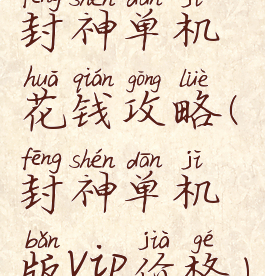 fēng shén dān jī
封神单机
huā qián gōng lüè
花钱攻略(
fēng shén dān jī
封神单机
bǎn jià gé
版vip价格)